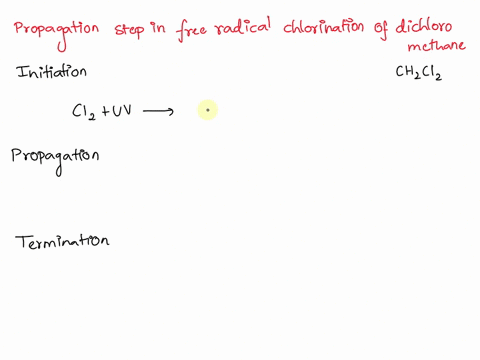 Propagation step in free radical chlorination of dichloro
methane
Initiation
CH2Cl2
Cl2 + UV ⟶
Propagation
Termination